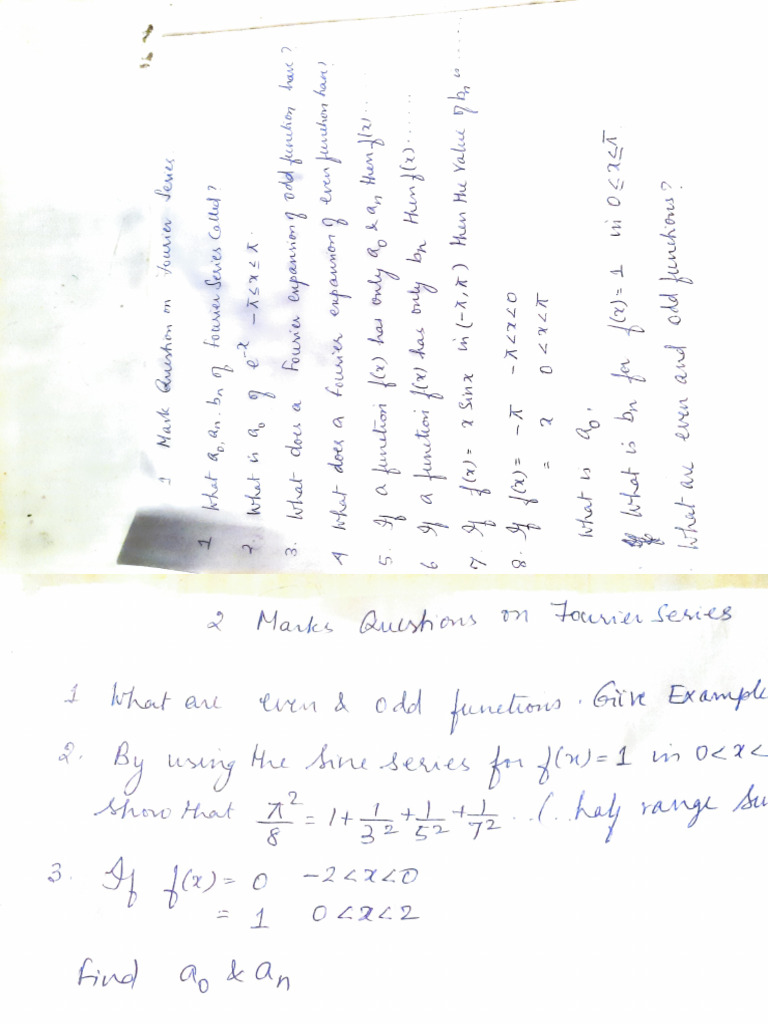 1 Mark Question on Fourier Series
1 What a₀, aₙ. bₙ of Fourier Series Called?
2. What is a₀ of e⁻ˣ -π≤x≤π.
3. What does a Fourier expansion of odd function have?
4 What does a Fourier expansion of even function have?
5. If a function f(x) has only a₀ & aₙ then f(x)...
6 If a function f(x) has only bₙ then f(x)......
7. If f(x) = x Sinx in (-π, π) then the value of bₙ is ......
8. If f(x) = -π -π<x<0
= x 0<x<π
What is a₀.
What is bₙ for f(x) = 1 in 0≤x≤π
. What are even and odd functions?
2 Marks Questions on Fourier Series
1 What are even & odd functions. Give Example
2. By using the Sine series for f(x) = 1 in 0<x<
Show that π²/8 = 1 + 1/3² + 1/5² + 1/7² ..(.. half range
3. If f(x) = 0 -2<x<0
= 1 0<x<2
find a₀ & aₙ